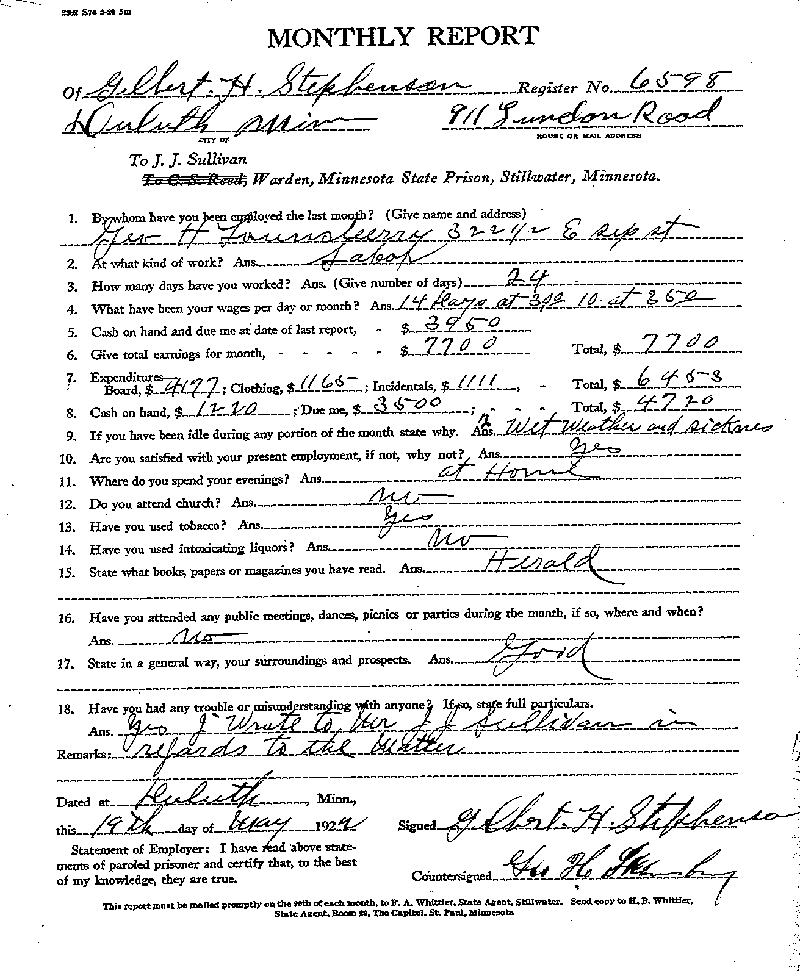 MONTHLY REPORT
Of Gilbert. H. Stephenson Register No. 6598
Duluth Minn 911 London Road
CITY OF HOUSE OR MAIL ADDRESS
To J. J. Sullivan
To C. S. Reed, Warden, Minnesota State Prison, Stillwater, Minnesota.
1. By whom have you been employed the last month? (Give name and address)
Geo H Lounsberry 322 1/2 E sup st
2. At what kind of work? Ans. Labor
3. How many days have you worked? Ans. (Give number of days) 24
4. What have been your wages per day or month? Ans. 14 days at 3 10 at 350
5. Cash on hand and due me at date of last report, - $ 3950
6. Give total earnings for month, - - - - - $ 7700 Total, $ 7700
7. Expenditures
Board, $ 4177; Clothing, $ 1165; Incidentals, $ 1111, - Total, $ 6453
8. Cash on hand, $ 1220; Due me, $ 3500; - - - Total, $ 4720
9. If you have been idle during any portion of the month state why. Ans. Wet Weather and sicknes
10. Are you satisfied with your present employment, if not, why not? Ans. Yes
11. Where do you spend your evenings? Ans. at Home
12. Do you attend church? Ans. No
13. Have you used tobacco? Ans. Yes
14. Have you used intoxicating liquors? Ans. No
15. State what books, papers or magazines you have read. Ans. Herald
16. Have you attended any public meetings, dances, picnics or parties during the month, if so, where and when?
Ans. No
17. State in a general way, your surroundings and prospects. Ans. Good
18. Have you had any trouble or misunderstanding with anyone? If so, state full particulars.
Ans. Yes I Wrote to J J Sullivan in
Remarks: regards to the Matter
Dated at Duluth, Minn.,
this 19th day of May 192 Signed Gilbert. H. Stephenso
Statement of Employer: I have read above state-
ments of paroled prisoner and certify that, to the best
of my knowledge, they are true. Countersigned Geo H
This report must be mailed promptly on the of each month, to F. A. Whittier, State Agent, Stillwater. Send copy to H. B. Whittier,
State Agent, Room, The Capitol, St. Paul, Minnesota